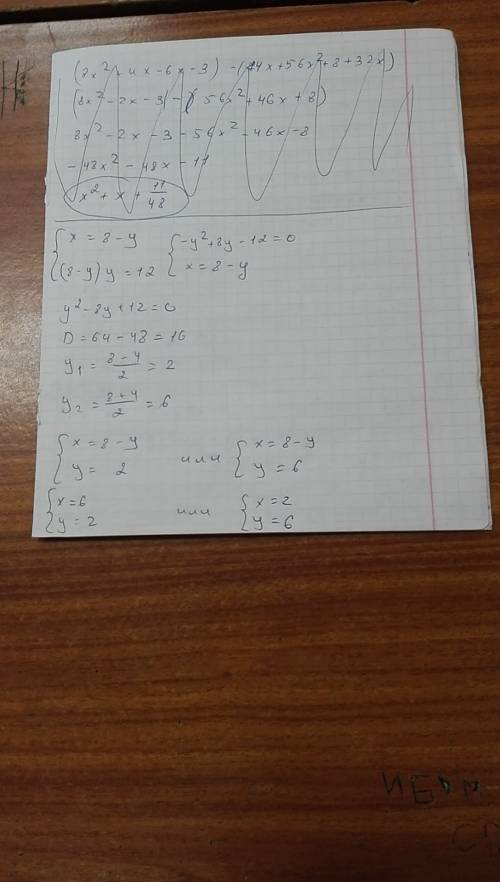 (8x² + 4x - 6x - 3) - (14x + 56x² + 8 + 32x)
(8x² - 2x - 3) - (56x² + 46x + 8)
8x² - 2x - 3 - 56x² - 46x - 8
-48x² - 48x - 11
x² + x + 11/48
{x = 8 - y {-y² + 8y - 12 = 0
{(8 - y) y = 12 {x = 8 - y
y² - 8y + 12 = 0
D = 64 - 48 = 16
y₁ = (8 - 4)/2 = 2
y₂ = (8 + 4)/2 = 6
{x = 8 - y или {x = 8 - y
{y = 2 {y = 6
{x = 6 или {x = 2
{y = 2 {y = 6